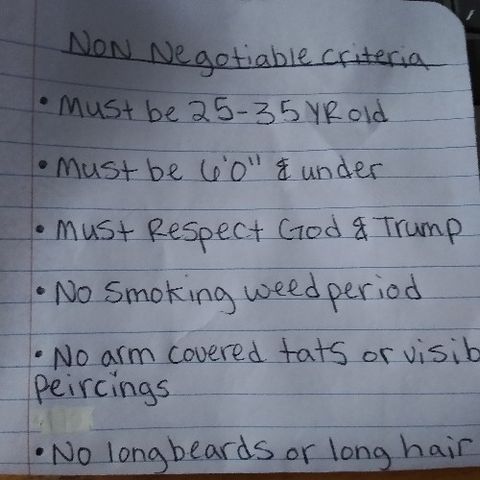 NON Negotiable criteria
• Must be 25-35 YR old
• Must be 6'0" & under
• Must Respect God & Trump
• No smoking weed period
• No arm covered tats or visib
peircings
• No long beards or long hair